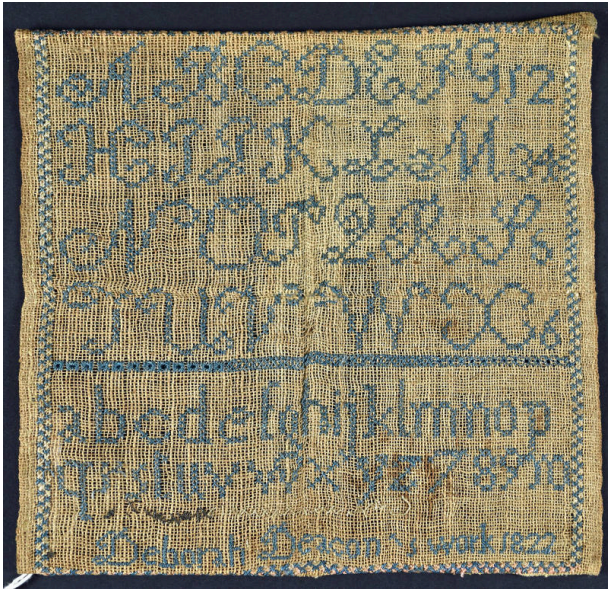 A B C D E F G 1 2
H I J K L M 3 4
N O P Q R S 5
T U V W X 6
a b c d e f g h i j k l m n o p
q r s t u v w x y z 7 8 9 10
Deborah Deacon's work 1822